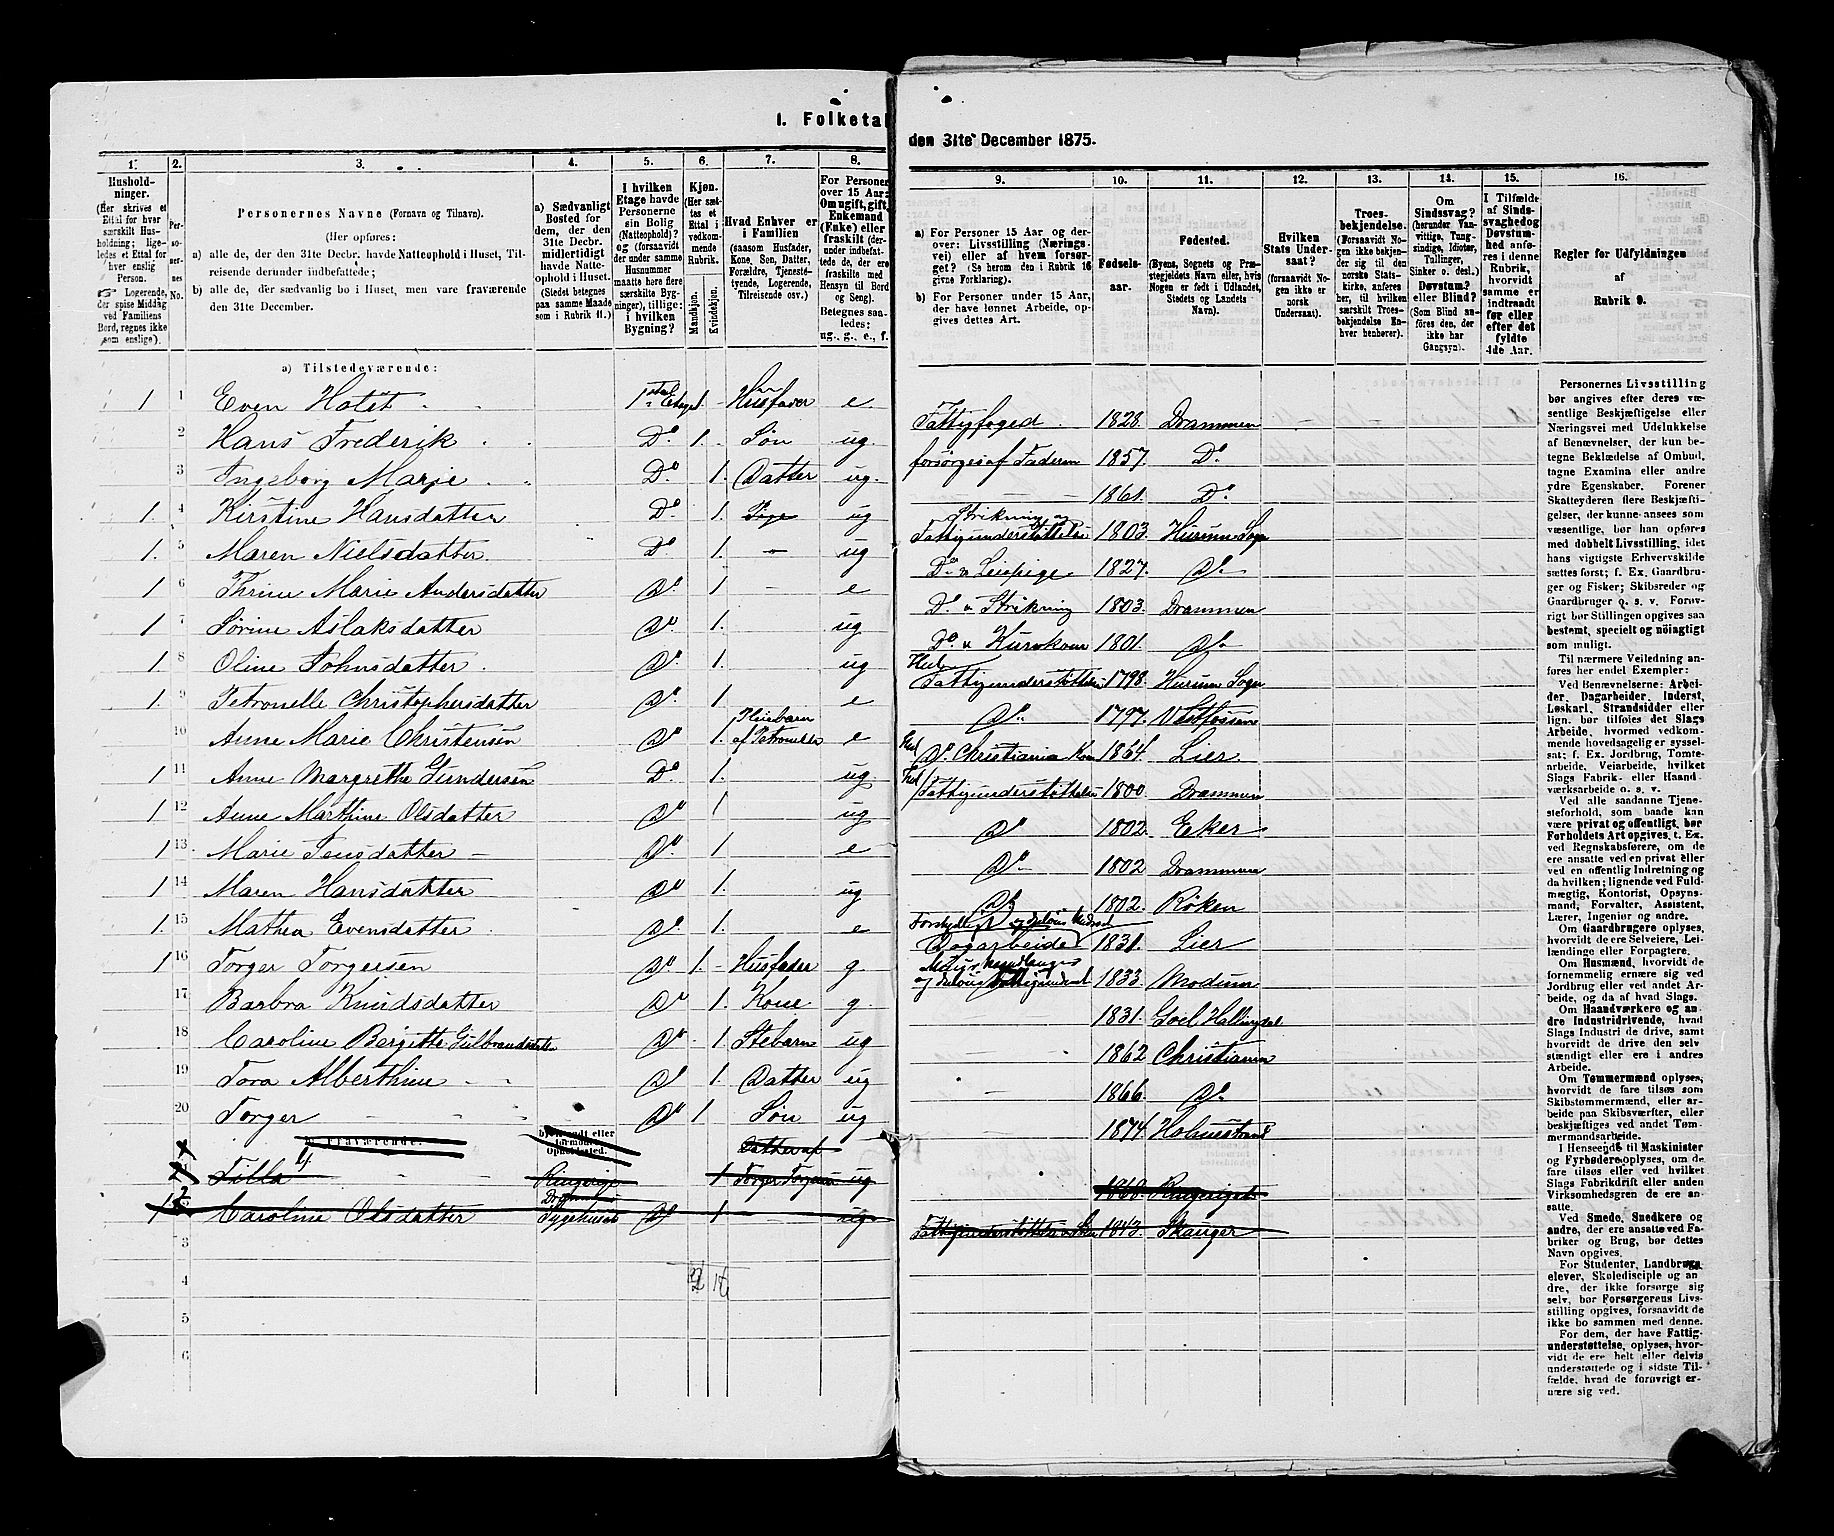 1. Folketal
den 31te December 1875.
1. 2. 3. 4. 5. 6. 7. 8. 9. 10. 11. 12. 13. 14. 15. 16.
Personernes Navne (Fornavn og Tilnavn).
(Her opføres:
a) alle de, der den 31te Decbr. havde Natteophold i Huset, Tilreisende derunder indbefattede;
b) alle de, der sædvanlig bo i Huset, men vare fraværende den 31te December.
a) Sædvanligt Bosted for dem, der den 31te Decbr. midlertidigt havde Natteophold i Huset.
(Stedet betegnes paa samme Maade som i Rubrik 11.)
I hvilken Etage havde Personerne sin Bolig (Natteophold)? og (forsaavidt der under samme Husnummer maatte høre flere særskilte Bygninger), tillige: i hvilken Bygning?
Kjøn.
Mandkjøn. Kvindekjøn.
Hvad Enhver er i Familien
(saasom Husfader, Kone, Søn, Datter, Forældre, Tjenestetyende, Logerende, Tilreisende osv.)
For Personer over 15 Aar: Om ugift, gift, Enkemand (Enke) eller fraskilt
Betegnes saaledes: ug., g., e., f.
a) For Personer 15 Aar og derover: Livsstilling (Næringsvei) eller af hvem forsørget? (Se herom den i Rubrik 16 givne Forklaring).
b) For Personer under 15 Aar, der have lønnet Arbeide, opgives dettes Art.
Fødselsaar.
Fødested.
(Byens, Sognets og Præstegjeldets Navn eller, hvis Nogen er født i Udlandet, Stedets og Landets Navn).
Hvilken Stats Undersaat?
(forsaavidt Nogen ikke er norsk Undersaat).
Troesbekjendelse.
Regler for Udfyldningen af Rubrik 9.
a) Tilstedeværende:
1 1 Even Holst 1ste Etage 1 Husfader e. Fattigfoged 1828. Drammen
2 Hans Frederik Do. 1. Søn ug. forsørges af Faderen 1857. Do.
3 Ingeborg Marie Do. 1. Datter ug. 1861. Do.
1. 4 Kirstine Hansdatter Do. 1. Pige ug Strikning og Fattigunderstøttelse 1803. Hurum Sogn
1. 5 Maren Nielsdatter Do. 1. ug Do. & Leiepige 1827. Do.
1 6 Thrine Marie Andersdatter Do. 1 e Do. & Strikning 1803. Drammen
1 7 Sørine Aslaksdatter Do. 1. ug Do. & 1801. Do.
1. 8 Oline Johnsdatter Do. 1. ug Hel Fattigunderstøttelse 1798. Hurum Sogn
1 9 Petronelle Christophersdatter Do. 1 e Do. 1797. Vestfossen
10 Anne Marie Christensen Do. 1. Pleiebarn af Petronelle e Hel Do. Christiania Kom 1864. Lier.
1 11 Anne Margrethe Gundersen Do. 1. ug. Hel Fattigunderstøttelse 1800. Drammen
1 12 Anne Marthine Olsdatter Do 1 ug Do 1802. Eker
1 13 Marie Jensdatter Do. 1 e Do 1802 Drammen
1 14 Maren Hansdatter Do 1. ug Do. 1802. Røken
1. 15 Mathea Evensdatter Do. 1. e Dagarbeide 1831. Lier
1 16 Torger Torgersen Do 1. Husfader g. 1833. Modum
17 Barbra Knudsdatter Do 1. Kone g. 1831. Goel Hallingdal
18 Caroline Bergitte Gulbrandsdatter Do 1. Stebarn ug 1862 Christiania
19 Tora Alberthine Do 1. Datter ug 1866. Do.
20 Torger Do 1. Søn ug 1874. Holmestrand
b) Fraværende.
b) Kjendt eller formodet Opholdssted.
Tilla Ringerige 1 Datter af Torger Torgersen ug 1868. Ringeriget
1 2 Caroline Olsdatter Drammens Sygehuset Do 1 ug. 1843. Skauger
3
4 2 18
5
6
Personernes Livsstilling bør angives efter deres væsentlige Beskjæftigelse eller Næringsvei med Udelukkelse af Benævnelser, der kun betegne Beklædelse af Ombud, tagne Examina eller andre ydre Egenskaber. Forener Skatteyderen flere Beskjæftigelser, der kunne ansees som væsentlige, bør han opføres med dobbelt Livsstilling, idet hans vigtigste Erhvervskilde sættes først; f. Ex. Gaardbruger og Fisker; Skibsreder og Gaardbruger o. s. v. Forøvrigt bør Stillingen opgives saa bestemt, specielt og nöiagtigt som muligt.
Til nærmere Veiledning anføres her endel Exempler:
Ved Benævnelserne: Arbeider, Dagarbeider, Inderst, Løskarl, Strandsidder eller lign. bør tilføies det Slags Arbeide, hvormed vedkommende hovedsagelig er sysselsat; f. Ex. Jordbrug, Tomtearbeide, Veiarbeide, hvilket Slags Fabrik- eller Haandværksarbeide o. s. v.
Ved alle saadanne Tjenesteforhold, som baade kan være privat og offentligt, bør Forholdets Art opgives, t. Ex. ved Regnskabsførere, om de ere ansatte ved en privat eller ved en offentlig Indretning og da hvilken; lignende ved Fuldmægtig, Kontorist, Opsynsmand, Forvalter, Assistent, Lærer, Ingeniør og andre.
Om Gaardbrugere oplyses, hvorvidt de ere Selveiere, Leilændinge eller Forpagtere.
Om Husmænd, hvorvidt de fornemmelig ernære sig ved Jordbrug eller ved andet Arbeide, og da af hvad Slags.
Om Haandværkere og andre Industridrivende, hvad Slags Industri de drive, samt hvorvidt de drive den selvstændigt eller ere i andres Arbeide.
Om Tømmermænd oplyses, hvorvidt de fare tilsøs som Skibstømmermænd, eller arbeide paa Skibsværfter, eller beskjæftiges ved andet Tømmermandsarbeide.
I Henseende til Maskinister og Fyrbødere oplyses, om de fare tilsøs eller ved hvilket Slags Fabrikdrift eller anden Virksomhedsgren de ere ansatte.
Ved Smede, Snedkere og andre, der ere ansatte ved Fabriker og Brug, bør dettes Navn opgives.
For Studenter, Landbrugselever, Skoledisciple og andre, der ikke forsørge sig selv, bør Forsørgerens Livsstilling opgives, forsaavidt de ikke bo sammen med denne.
For dem, der have Fattigunderstøttelse, oplyses, hvorvidt de ere helt eller delvis understøttede og i sidste Tilfælde, hvad de forøvrigt ernære sig ved.